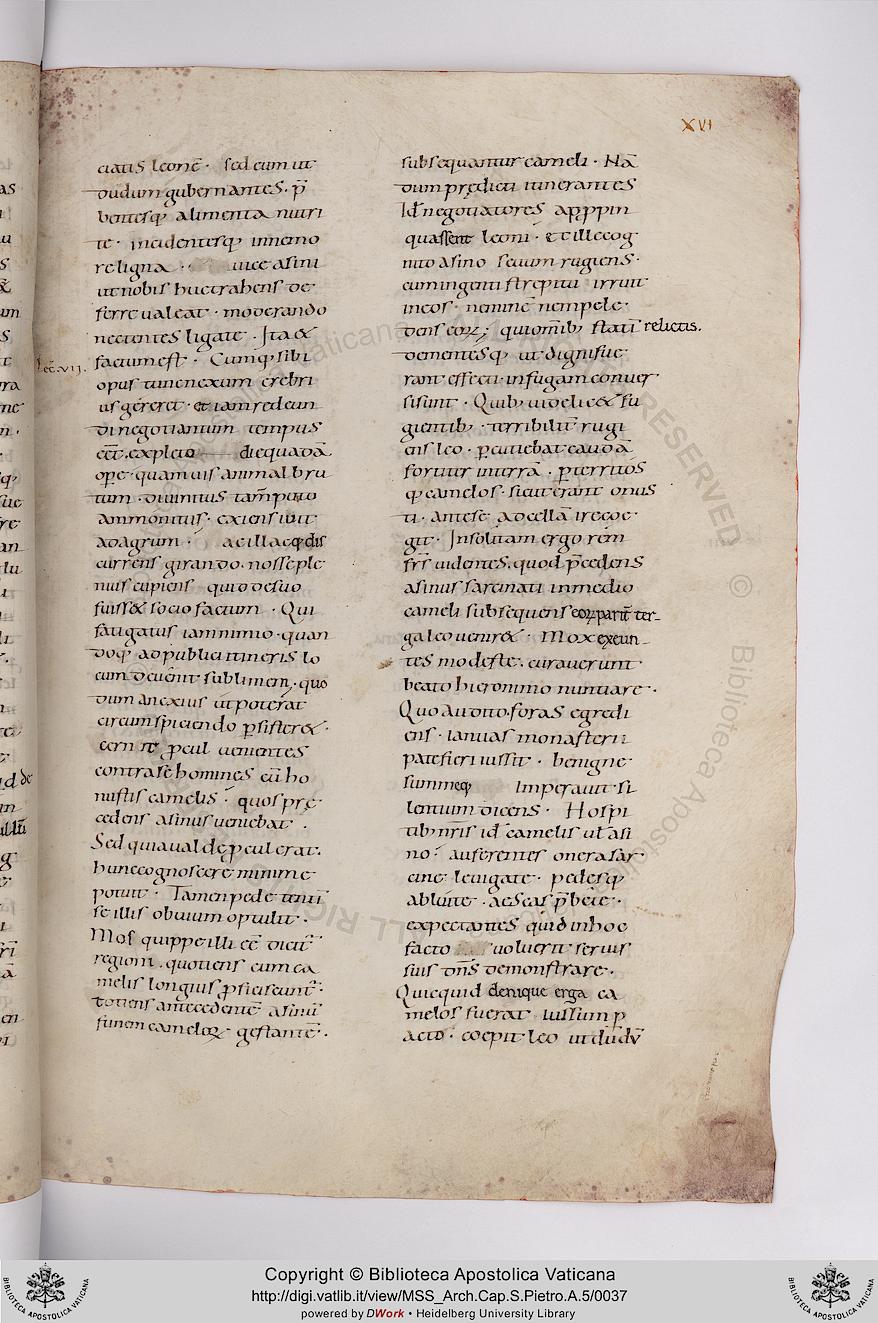 XVI
ciatis leonē · sed eum ut
dudum gubernantes · p̄
bentesq; alimenta nutri
te · incidentesq; in nemo
re ligna · uice asini
ut nobis huc trahens de
ferre ualeat · moderando
nectentes ligate · Ita &
factum est · Cumq; sibi
lec̄. vii.
opus iniunctum crebri
us gereret · et iam redeun
di negotiantum tempus
eēt. expleto die quadā
ope · quamuis animal bru
tum · diuinitus tam̄
ammonitus · exiens iuit
ad agrum · ac illac q; dis
currens girando · nosse ple
nius cupiens quid de suo
fuiss& socio factum · Qui
fatigatus iam nimio · quan
doq; ad publici itineris lo
cum
dum anxius ut poterat
circumspiciendo p̱sister& ·
cernit p̱cul uenientes
contra se homines cū ho
nustis camelis · quos pre
cedens asinus ueniebat ·
Sed quia ualde p̱cul erat ·
hunc cognoscere minime
potuit · Tamen pede
se illis obuium optulit ·
Mos quippe illi eē dicit̄
regioni · quotiens cum ca
melis longius p̱ficiscunt̄ ·
totiens antecedentē asinū
funem cameloꝝ gestantē ·
subsequantur cameli · Nā
dum predicti itinerantes
Id negotiatores appin
quassent leoni · et ille cog
nito asino seuum rugiens ·
cum ingenti strepitu irruit
in eos · neminē nempe le
dens eoꝝ; qui om̄ib; statī relictis.
dementesq; ut digni fue
rant effecti · in fugam conuer
si sunt · Quib; uidelic& fu
gientib; · terribilit̄ rugi
ens leo · p̱cutiebat caudā
fortiter in terrā · p̱territos
q; camelos · sicut erant onus
ti · ante se ad cellā ire coe
git · Insolitam ergo rem
frs̄ uidentes · quod p̄cedens
asinus sarcinati in medio
cameli subsequens eoꝝ parit̄ ter-
ga leo uenir& · Mox exeun-
tes modeste · curauerunt
beato hieronimo nuntiare ·
Quo audito · foras egredi
ens · ianuas monasterii
patefieri iussit · benigne
summeq; Imperauit si
lentium dicens · Hospi
tib; nr̄is id camelis ut̄ asi
no · auferentes onera sar
cine leuigate · pedesq;
abluite · ac escas p̄bete ·
expectantes quid in hoc
facto uoluerit seruis
suis dn̄s demonstrare ·
Quicquid denique erga ca
melos fuerat iussum p̱
acto · coepit leo ut dudū
Copyright © Biblioteca Apostolica Vaticana
http://digi.vatlib.it/view/MSS_Arch.Cap.S.Pietro.A.5/0037
powered by DWork • Heidelberg University Library